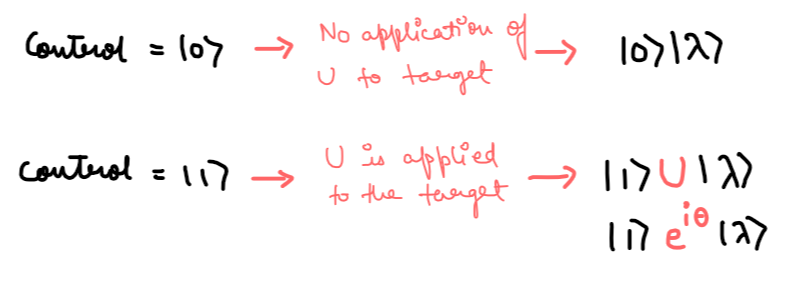 Control = |0⟩ → No application of U to target → |0⟩|λ⟩
Control = |1⟩ → U is applied to the target → |1⟩ U |λ⟩
|1⟩ e^{iθ} |λ⟩